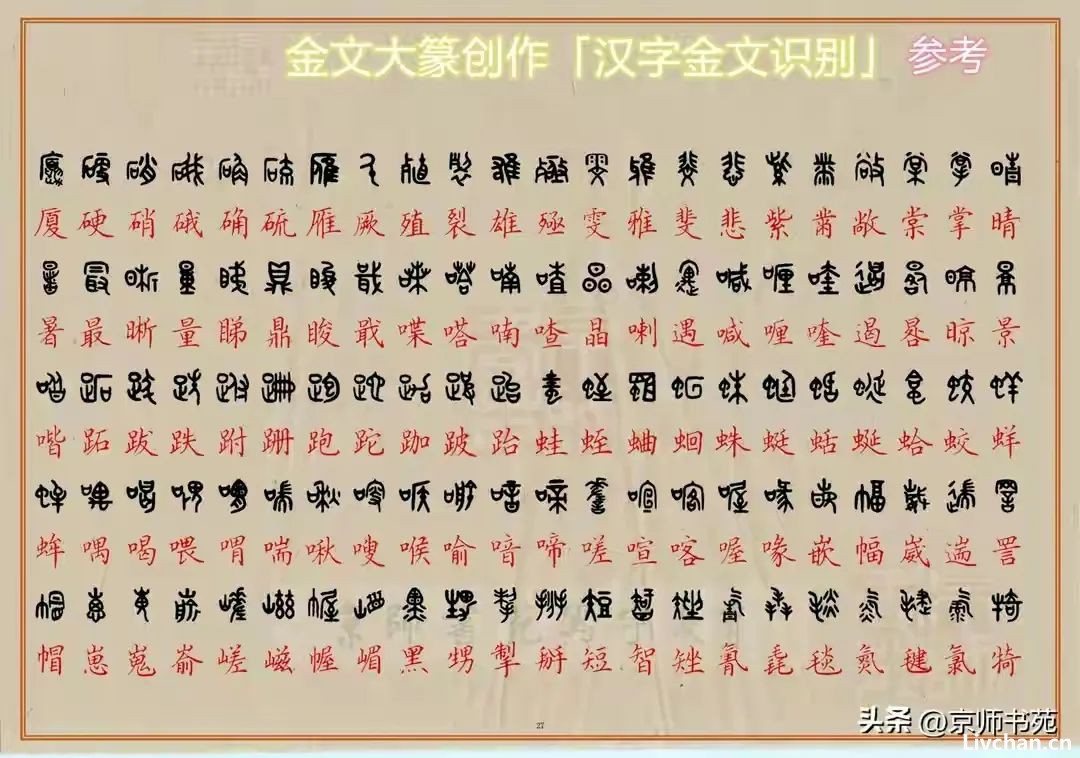 金文大篆创作「汉字金文识别」 参考
厦硬硝硪确硫雁厥殖裂雄殛雯雅斐悲紫黹敞棠掌晴
暑最晰量睇鼎睃戢喋嗒喃喳晶喇遇喊喱喹遏晷晾景
喈跖跋跌跗跚跑跎跏跛跆蛙蛭蛐蛔蛛蜓蛞蜒蛤蛟蛘
蛑喁喝喂喟喘啾嗖喉喻喑啼嗟喧喀喔喙嵌幅崴遄詈
帽崽嵬嵛嵯嵫幄嵋黑甥掣掰短智矬氰毳毯氮毽氯犄
27
头条 @京师书苑
Livchan.cn